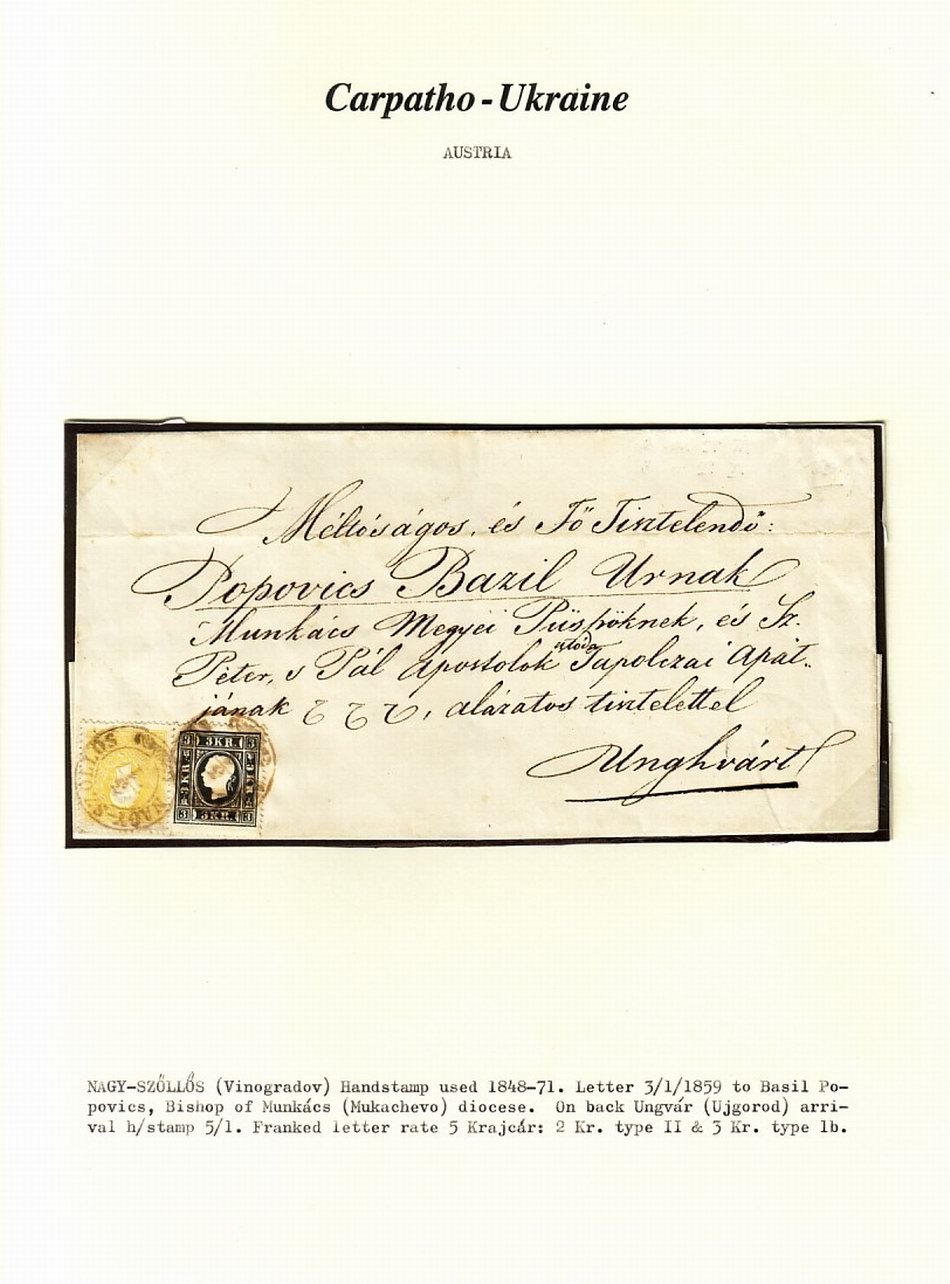 Carpatho - Ukraine
AUSTRIA
Méltóságos, és Fő Tisztelendő:
Popovics Bazil Urnak
Munkács Megyei Püspöknek, és Sz.
Péter, s Pál Apostolok Tapolczai Apát-
jának, alázatos tisztelettel
Unghvárt
NAGY-SZÖLLÖS
3 3 KR. 3
3 KR.
3 3 KR. 3
NAGY-SZŐLLŐS (Vinogradov) Handstamp used 1848-71. Letter 3/1/1859 to Basil Po-
povics, Bishop of Munkács (Mukachevo) diocese. On back Ungvár (Ujgorod) arri-
val h/stamp 5/1. Franked letter rate 5 Krajcár: 2 Kr. type II & 3 Kr. type lb.